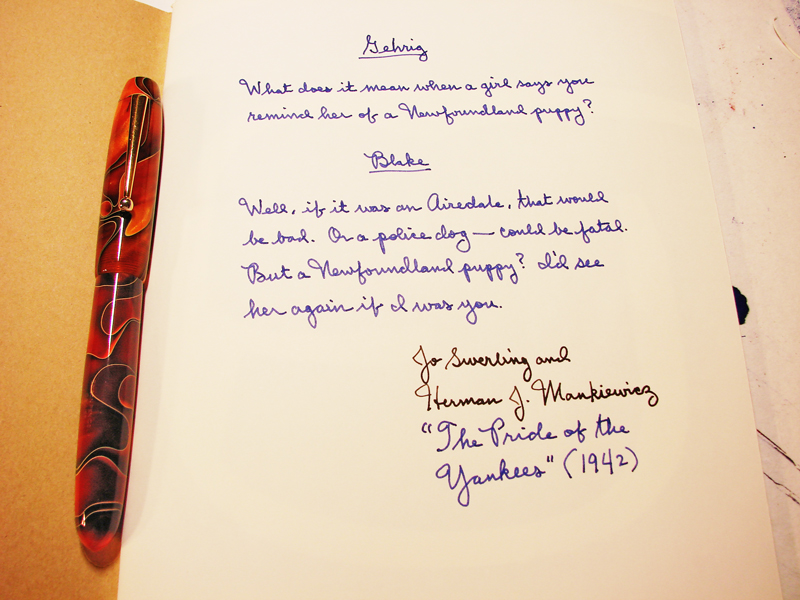 Gehrig
What does it mean when a girl says you
remind her of a Newfoundland puppy?
Blake
Well, if it was an Airedale, that would
be bad. Or a police dog — could be fatal.
But a Newfoundland puppy? I'd see
her again if I was you.
Jo Swerling and
Herman J. Mankiewicz
"The Pride of the
Yankees" (1942)